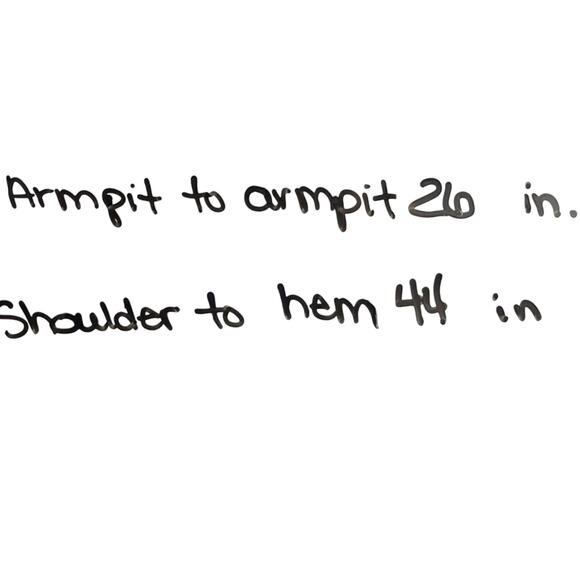 Armpit to armpit 26 in.
Shoulder to hem 44 in